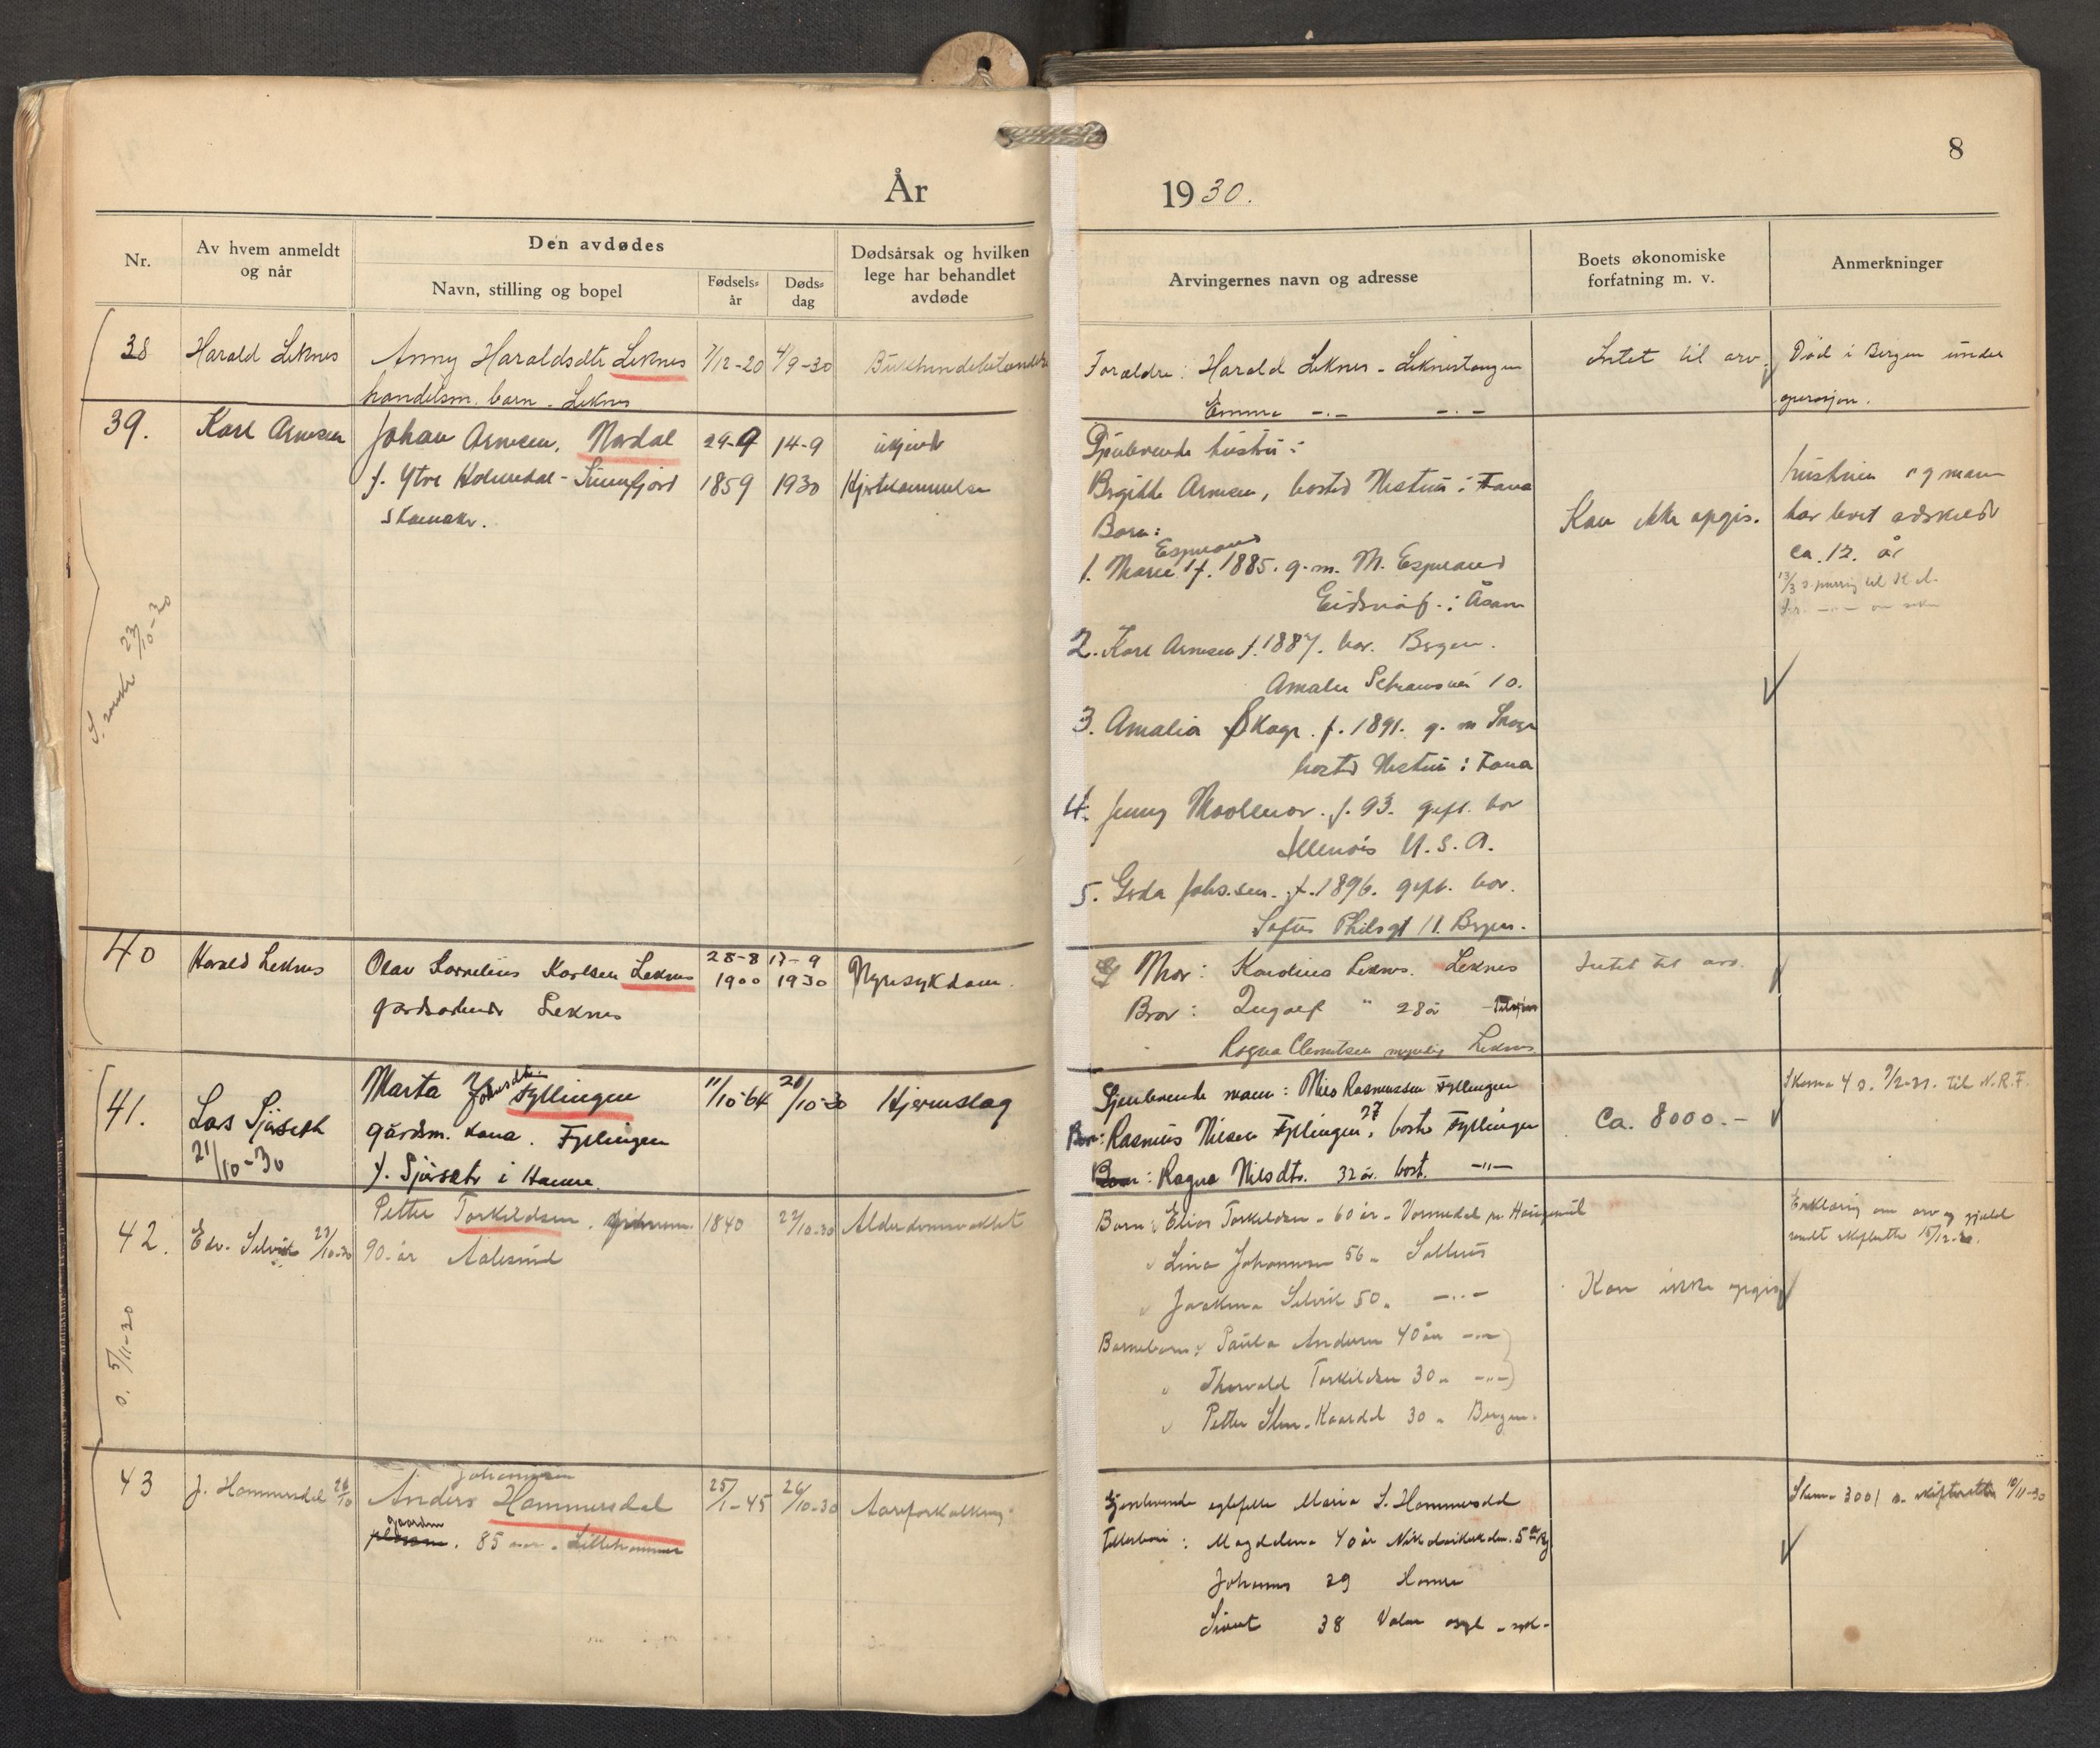 8
År 1930.
Nr.
Av hvem anmeldt
og når
Den avdødes
Navn, stilling og bopel
Fødsels-
år
Døds-
dag
Dødsårsak og hvilken
lege har behandlet
avdøde
Arvingernes navn og adresse
Boets økonomiske
forfatning m. v.
Anmerkninger
38
Harald Leknes
Anny Haraldsdtr Leknes
handelsm. barn - Leknes
7/12-20
4/9-30
Forældre: Harald Leknes - Leknestangen
Emma -..- -..-
Intet til arv.
Død i Bergen under
operasjon.
39.
Karl Arnesen
Johan Arnesen, Nordal
f. Ytre Holmedal - Sunnfjord
skomakr.
29-9
1859
14-9
1930
ukjent
Hjertelammelse
Gjenlevende hustru:
Birgitte Arnesen, bosted Nestun i Fana
Born:
Espeland
1. Marie f. 1885. g. m. M. Espeland
Åsane
2. Karl Arnesen f. 1887. bor. Bergen.
Amalie 10.
3. Amalia Skage. f. 1891. g. m Skage
bosted Nestun i Fana
4. Jenny f. 93. gift. bor
Illenois U.S.A.
5. Gerda Johs.sen. f. 1896. gift. bor.
Bergen.
Kan ikke opgis.
hustruen og mann
har levet adskildt
ca. 12. år
S. sendt 23/10-30
40
Harald Leknes
Olav Kornelius Karlsen Leknes
gardsarbeider Leknes
28-8
1900
17-9
1930
Nyresykdom.
Mor: Leknes. Leknes
Bror: Ingolf " 28 år
Ragna Clemetsen myndig Leknes
Intet til arv.
41.
Lars Sjurseth
21/10-30
Marta Johnsdtr. Fyllingen
gårdm. kona. Fyllingen
f. Sjursetr i Hamre.
11/10-64
20/10-30
Hjerneslag
Gjenlevende mann: Nils Rasmussen Fyllingen
Barn: Rasmus Nilsen Fyllingen 27, bosted Fyllingen
Barn: Ragna Nilsdtr. 32 år. bost. -"-
Ca. 8000.-
Skema 4 s. 9/2-31. til N.R.F.
42.
Edv. Selvik 23/10-30
Petter Torkildsen.
90. år Aalesund
1840
22/10-30
Alderdomssvakhet
Barn: Elias Torkildsen - 60 år -
Lina Johannesen 56 " Salhus
Selvik 50 " -..-
Barnebarn: Paula Andersen 40 år -..-
Thorvald Torkildsen 30 " -..-
Petter 30 " Bergen.
Kan ikke opgis
Erklæring om arv og gjæld
sendt skifteretten 15/12-30.
s. 5/11-30
43
J. Hammersdal 26/10
Johannesen
Anders Hammersdal
gaardm
85 aar. Lillehammer
25/1-45
26/10-30
Aareforkalkning
Gjenlevende egtefelle Maria S. Hammersdal
Magdalena 40 år
Johannes 29 Hamre
Sivert 38
Skema 3001 s. skifteretten 10/11-30